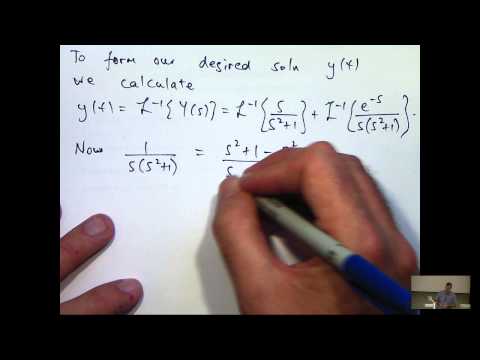 To form our desired soln y(t)
we calculate
y(t) = L⁻¹{Y(s)} = L⁻¹{s/(s²+1)} + L⁻¹{e⁻ˢ/(s(s²+1))}.
Now 1/(s(s²+1)) = (s²+1-s²)/(s